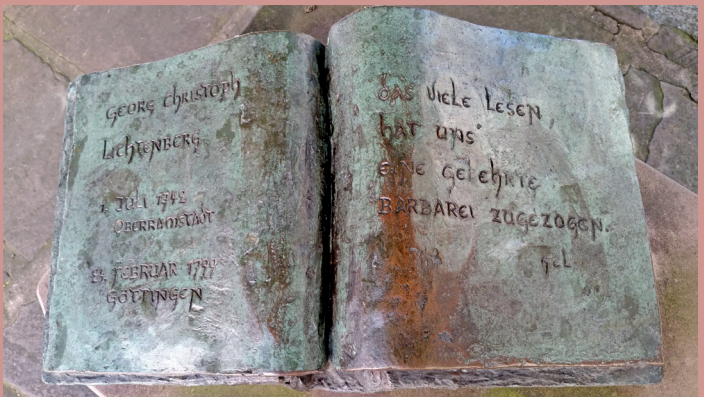 GEORG CHRISTOPH
LICHTENBERG
1. JULI 1742
OBERRAMSTADT
8. FEBRUAR 1799
GÖTTINGEN
DAS VIELE LESEN,
HAT UNS
EINE GELEHRTE
BARBAREI ZUGEZOGEN.